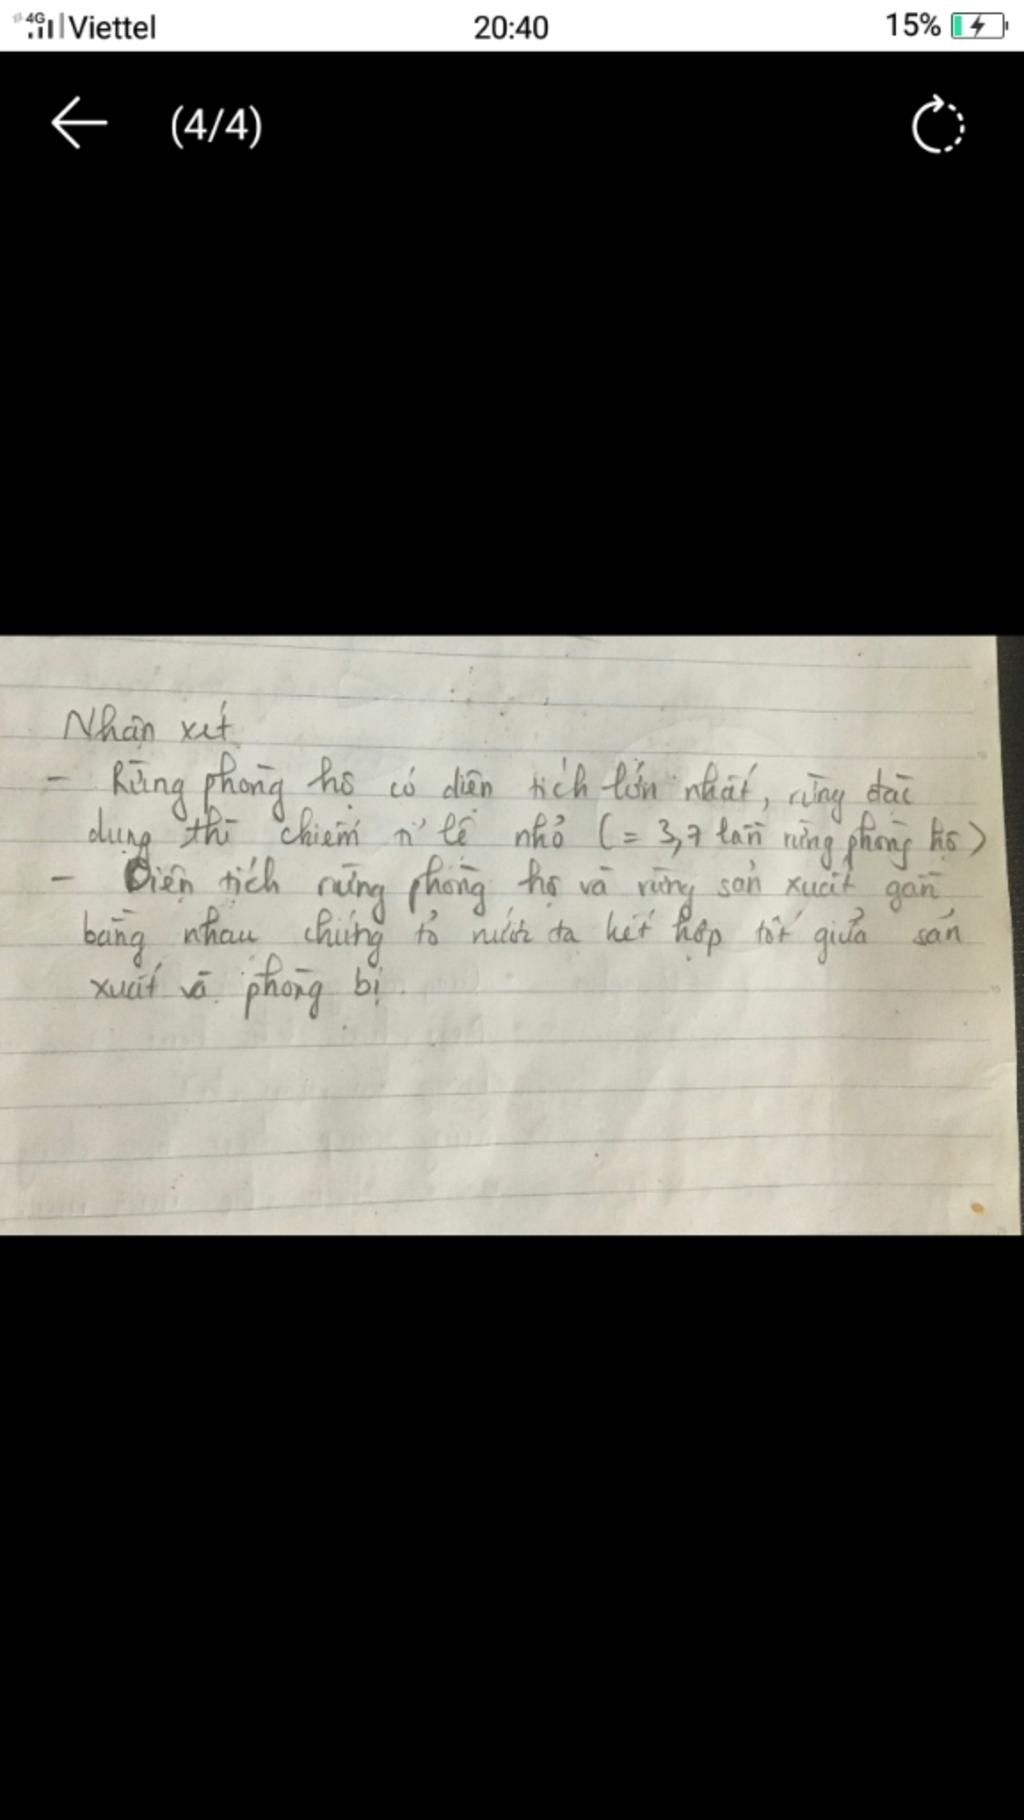 4G Viettel 20:40 15%
(4/4)
Nhận xét
- Rừng phòng hộ có diện tích lớn nhất, rừng đặc
dụng thì chiếm tỉ lệ nhỏ (= 3,7 lần rừng phòng hộ)
- Diện tích rừng phòng hộ và rừng sản xuất gần
bằng nhau chứng tỏ nước ta kết hợp tốt giữa sản
xuất và phòng bị.